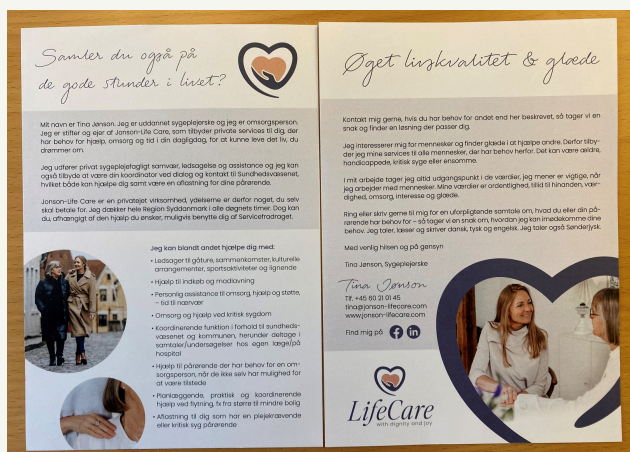 Samler du også på
de gode stunder i livet?
Mit navn er Tina Jønson. Jeg er uddannet sygeplejerske og jeg er omsorgsperson.
Jeg er stifter og ejer af Jonson-Life Care, som tilbyder private services til dig, der
har behov for hjælp, omsorg og tid i din dagligdag, for at kunne leve det liv, du
drømmer om.
Jeg udfører privat sygeplejefagligt samvær, ledsagelse og assistance og jeg kan
også tilbyde at være din koordinator ved dialog og kontakt til Sundhedsvæsenet,
hvilket både kan hjælpe dig samt være en aflastning for dine pårørende.
Jonson-Life Care er en privatejet virksomhed, ydelserne er derfor noget, du selv
skal betale for. Jeg dækker hele Region Syddanmark i alle døgnets timer. Dog kan
du, afhængigt af den hjælp du ønsker, muligvis benytte dig af Servicefradraget.
Jeg kan blandt andet hjælpe dig med:
• Ledsager til gåture, sammenkomster, kulturelle
arrangementer, sportsaktiviteter og lignende
• Hjælp til indkøb og madlavning
• Personlig assistance til omsorg, hjælp og støtte,
– tid til nærvær
• Omsorg og hjælp ved kritisk sygdom
• Koordinerende funktion i forhold til sundheds-
væsenet og kommunen, herunder deltage i
samtaler/undersøgelser hos egen læge/på
hospital
• Hjælp til pårørende der har behov for en om-
sorgsperson, når de ikke selv har mulighed for
at være tilstede
• Planlæggende, praktisk og koordinerende
hjælp ved flytning, fx fra større til mindre bolig
• Aflastning til dig som har en plejekrævende
eller kritisk syg pårørende
Øget livskvalitet & glæde
Kontakt mig gerne, hvis du har behov for andet end her beskrevet, så tager vi en
snak og finder en løsning der passer dig.
Jeg interesserer mig for mennesker og finder glæde i at hjælpe andre. Derfor tilby-
der jeg mine services til alle mennesker, der har behov herfor. Det kan være ældre,
handicappede, kritisk syge eller ensomme.
I mit arbejde tager jeg altid udgangspunkt i de værdier, jeg mener er vigtige, når
jeg arbejder med mennesker. Mine værdier er ordentlighed, tillid til hinanden, vær-
dighed, omsorg, interesse og glæde.
Ring eller skriv gerne til mig for en uforpligtende samtale om, hvad du eller din på-
rørende har behov for – så tager vi en snak om, hvordan jeg kan imødekomme dine
behov. Jeg taler, læser og skriver dansk, tysk og engelsk. Jeg taler også Sønderjysk.
Med venlig hilsen og på gensyn
Tina Jønson, Sygeplejerske
Tina Jønson
Tlf. +45 60 21 01 45
tina@jonson-lifecare.com
www.jonson-lifecare.com
Find mig på f in
LifeCare
with dignity and joy